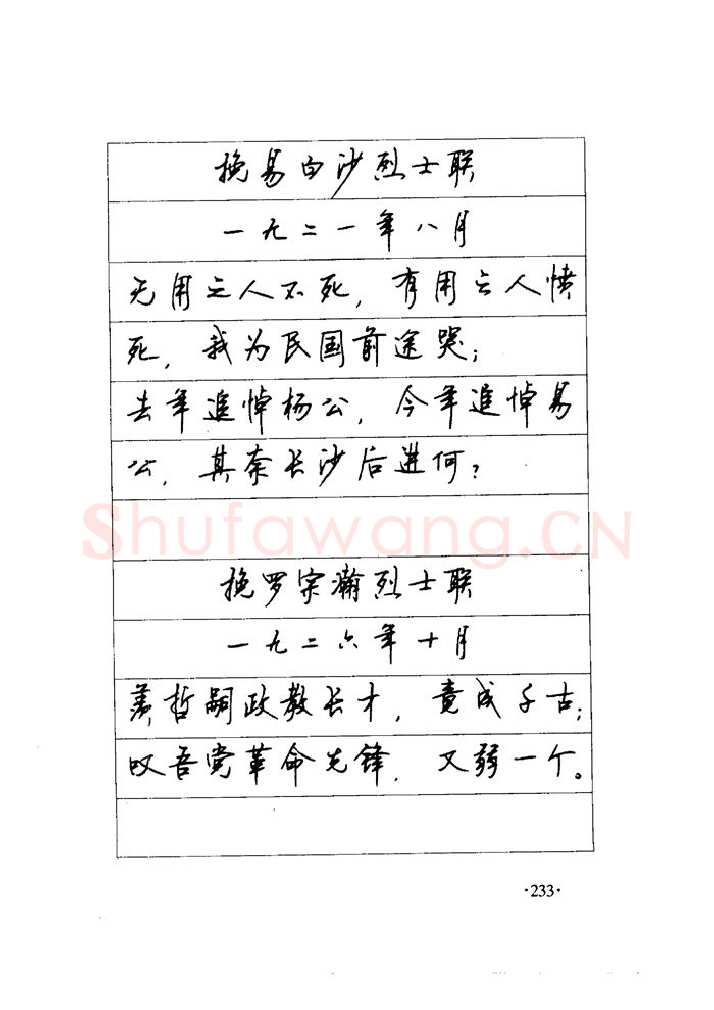 挽易白沙烈士联
一九二一年八月
无用之人不死，有用之人愤
死，我为民国前途哭；
去年追悼杨公，今年追悼易
公，其奈长沙后进何？
Shufawang.CN
挽罗宗瀚烈士联
一九二六年十月
羡哲嗣政教长才，竟成千古；
叹吾党革命先锋，又弱一个。
·233·